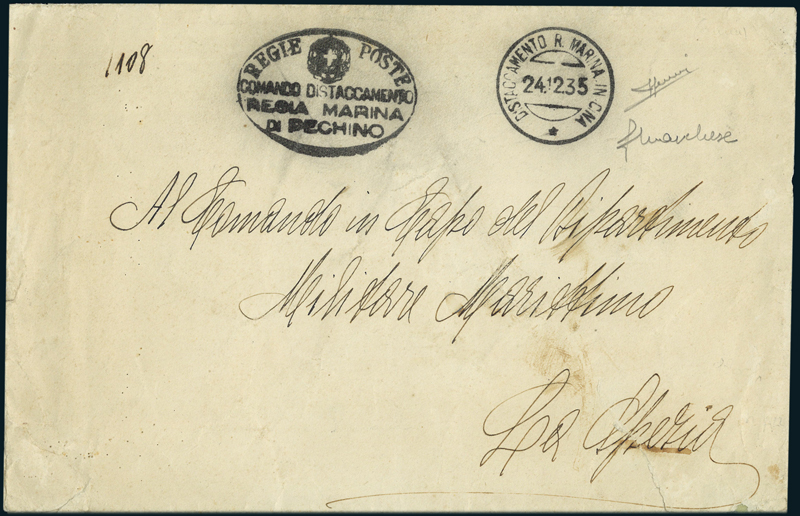 1108
REGIE POSTE
COMANDO DISTACCAMENTO
REGIA MARINA
DI PECHINO
DISTACCAMENTO R. MARINA IN CINA
24.12.35
Al Comando in Capo del Dipartimento
Militare Marittimo
La Spezia